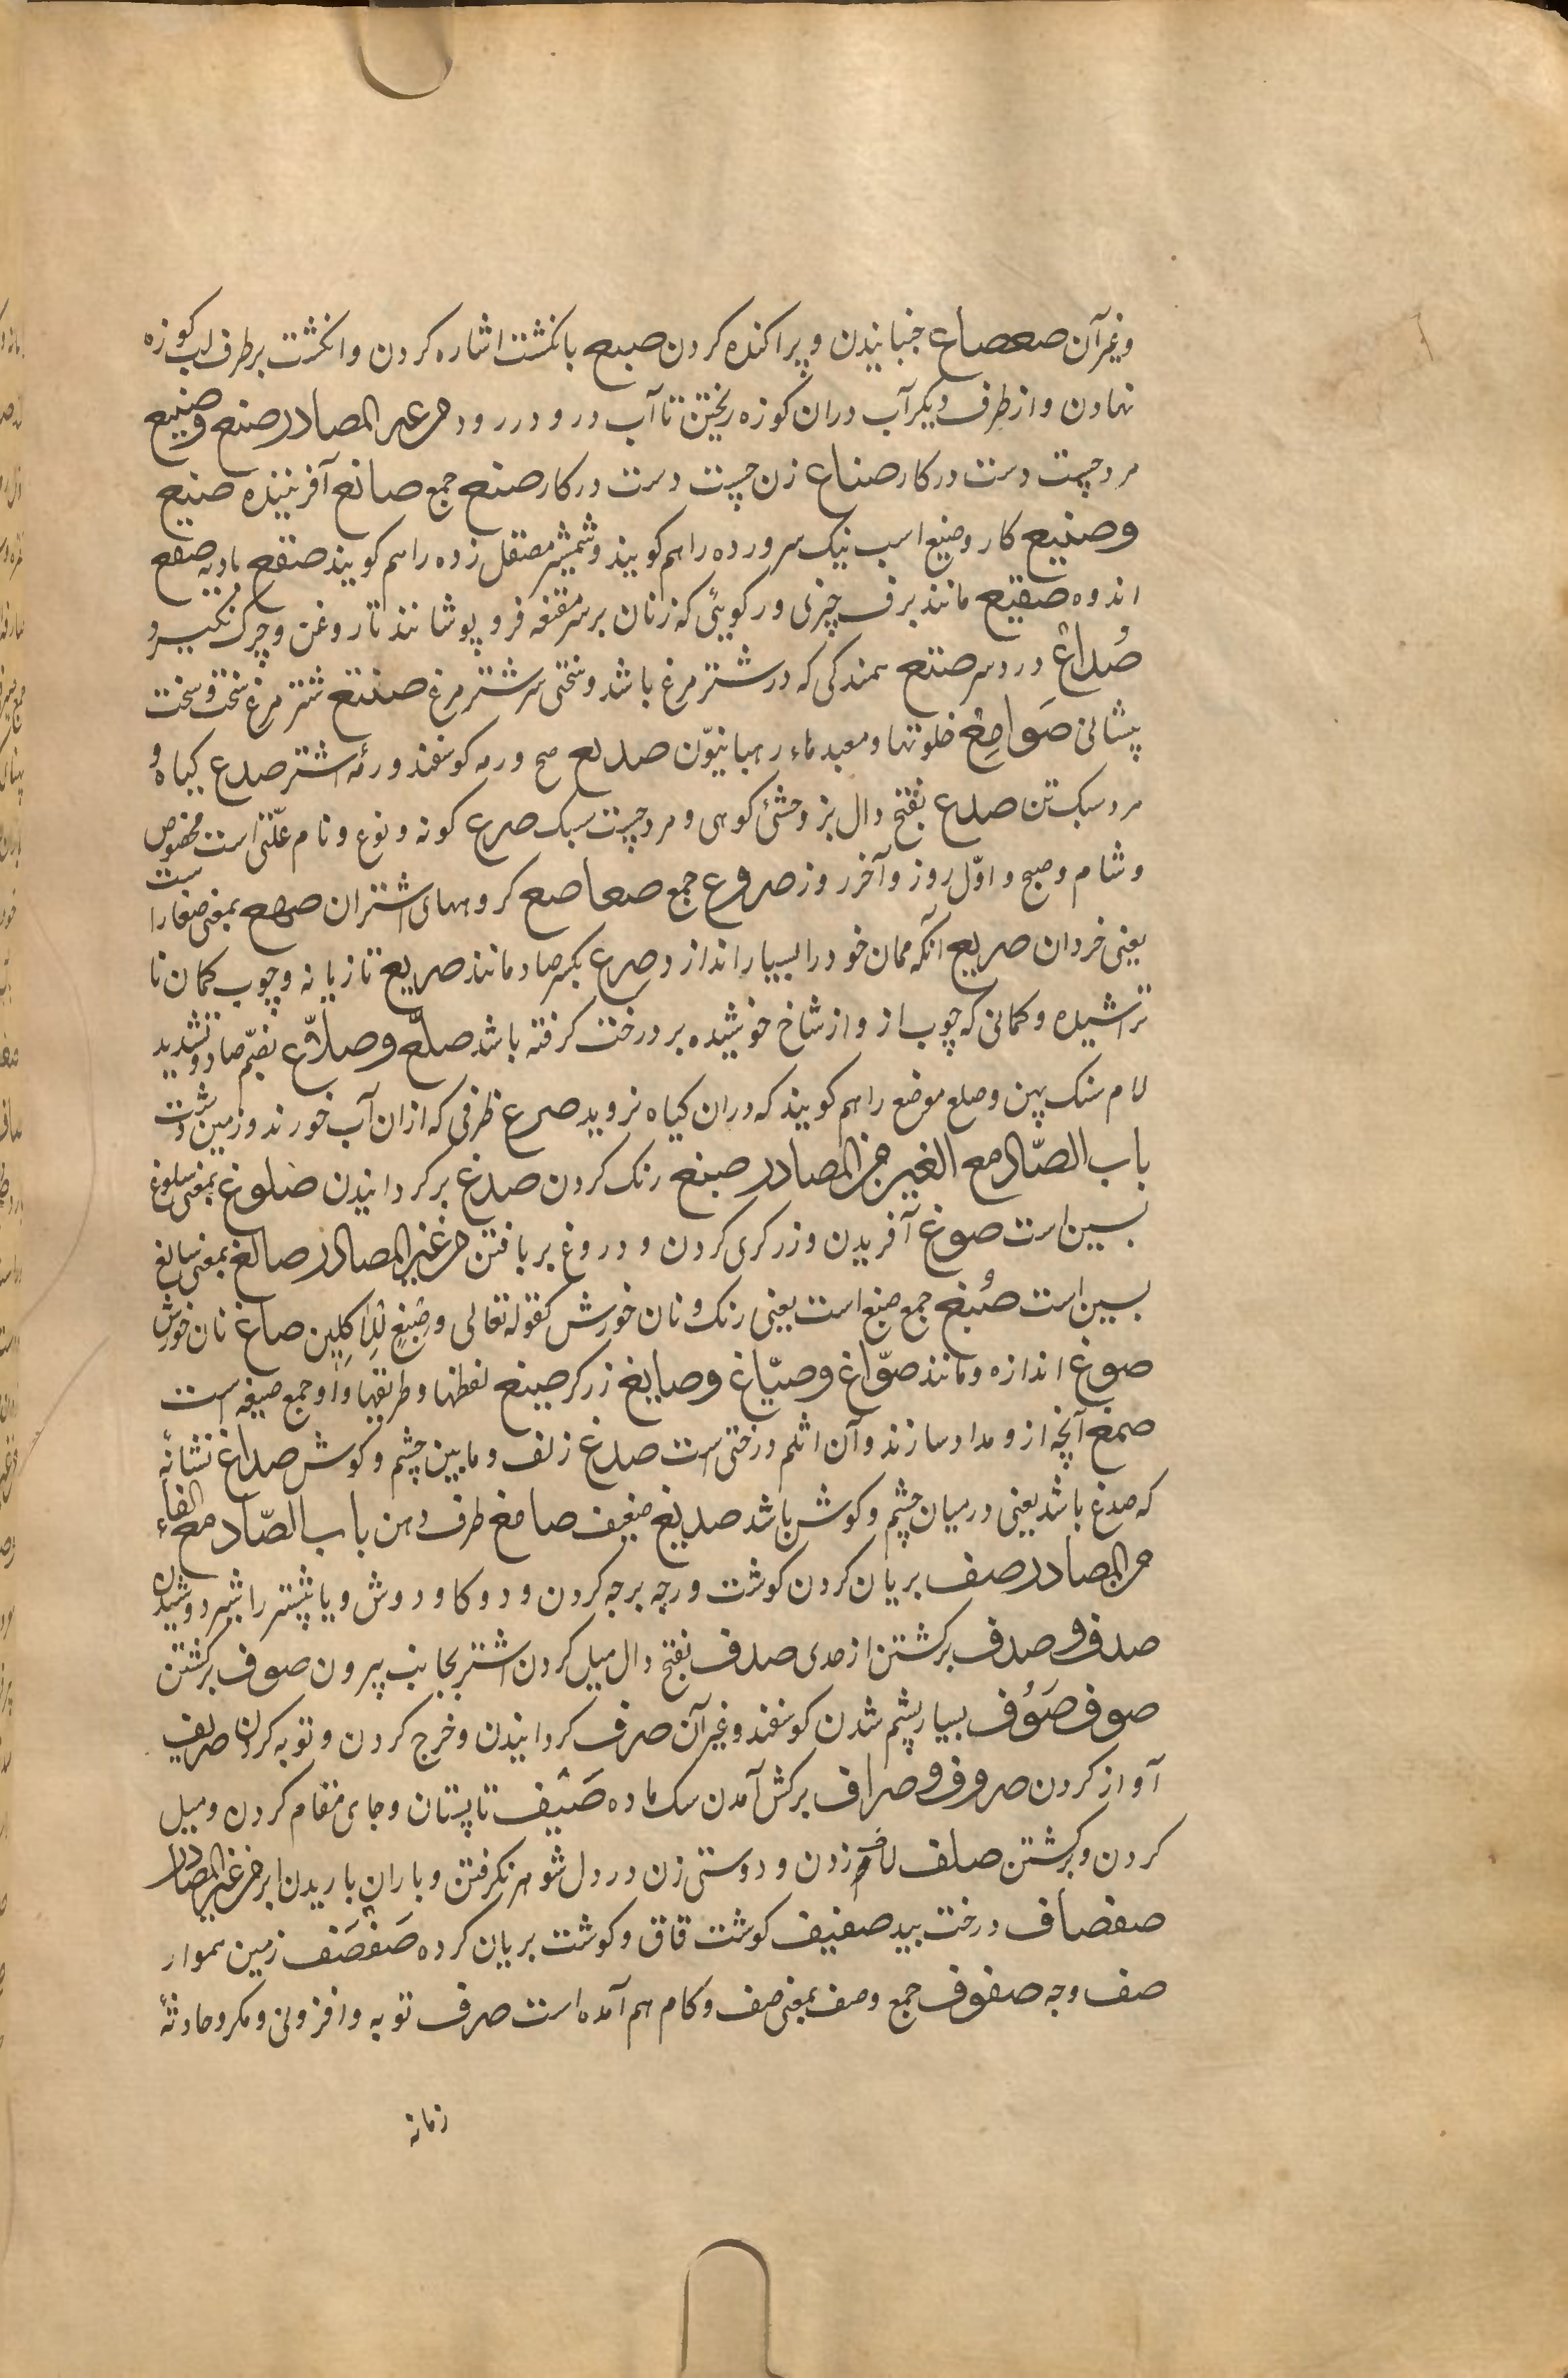 وغیر آن صعصاع جنبانیدن و پراکنده کردن صبع بانکشت اشاره کردن و انکشت بر طرف لب کوزه
نهادن و از طرف دیکر آب دران کوزه ریختن تا آب در و در رود من غیر المصادر صنع و صنیع
مرد چست دست در کار صناع زن چست دست در کار صنع جمع صانع آفریننده صنیع
و صنیع کار و صنیع اسب نیک سرورده را هم کویند و شمشیر مصقل زده را هم کویند صقع بادیه صقع
اندوه صقیع مانند برف چیزی و رکویئی که زنان بر سر مقنعه فرو پوشانند تا روغن و چرک نکیرد
صُداع درد سر صتع سمندکی که در شتر مرغ باشد و سختی سر شتر مرغ صنتع شتر مرغ سخت و سخت
پیشانی صَوامِع خلوتها و معبدهاء رهبانیّون صدیع صبح و رمه کوسفند و رمهٔ اشتر صدع کیاه و
مرد سبک تن صدع بفتح دال بز وحشئ کوهی و مرد چست سبک صرع کونه و نوع و نام علّتی است مخصوص
و شام و صبح و اوّل روز و آخر روز صروع جمع صعاصع کروههای اشتران بمعنی صغار است
یعنی خردان صریع آنکه مهمان خود را بسیار اندازد صرع بکسر صاد مانند صریع تازیانه و چوب کمان نا
تراشیده و کمانی که چوب از و از شاخ خوشیده بر درخت کرفته باشد صلّع و صلاّع بضم صاد و تشدید
لام سنک پهن و صلع موضع را هم کویند که دران کیاه نروید صرع ظرفی که ازان آب خورند و زمین شت
باب الصّاد مع الغین من المصادر صبغ رنک کردن صدغ بر کردانیدن صلوغ بمعنی سلوغ
بسین است صوغ آفریدن و زرکری کردن و دروغ بر بافتن من غیر المصادر صالغ بمعنی سالغ
بسین است صُبغ جمع صبغ است یعنی رنک و نان خورش کقوله تعالی وصِبْغٍ لِلآکِلِین صباغ نان خورش
صوغ اندازه و مانند صوّاغ و صیّاغ و صایغ زرکر صیغ لفظها و طریقها و او جمع صیغه است
صمغ آنچه از و مداد سازند و آن اثلم درختی است صدغ زلف و ما بین چشم و کوش صداغ نشانهٔ
که صدغ باشد یعنی در میان چشم و کوش باشد صدیغ ضعیف صامغ طرف دهن باب الصّاد مع الفاء
من المصادر صف بریان کردن کوشت و رچه برجه کردن و دو کاو دوش و یا پیشتر را شیر دوشیدن
صدف و صدف برکشتن از صدی صدف بفتح دال میل کردن اشتر بجانب بیرون صوف برکشتن
صوف صَوُف بسیار پشم شدن کوسفند و غیر آن صرف کردانیدن و خرج کردن و توبه کردن صریف
آواز کردن صروف و صراف برکش آمدن سک ماده صَیْف تابستان و جای مقام کردن و میل
کردن و برکشتن صلف لاف زدن و دوستی زن در دل شوهر نکرفتن و باران باریدن ابر من غیر المصادر
صفصاف درخت بید صفیف کوشت قاق و کوشت بریان کرده صَفْصَف زمین هموار
صف وجه صفوف جمع وصف بمعنی صف و کام هم آمده است صرف توبه و افزونی و مکر و حادثهٔ
زمانه